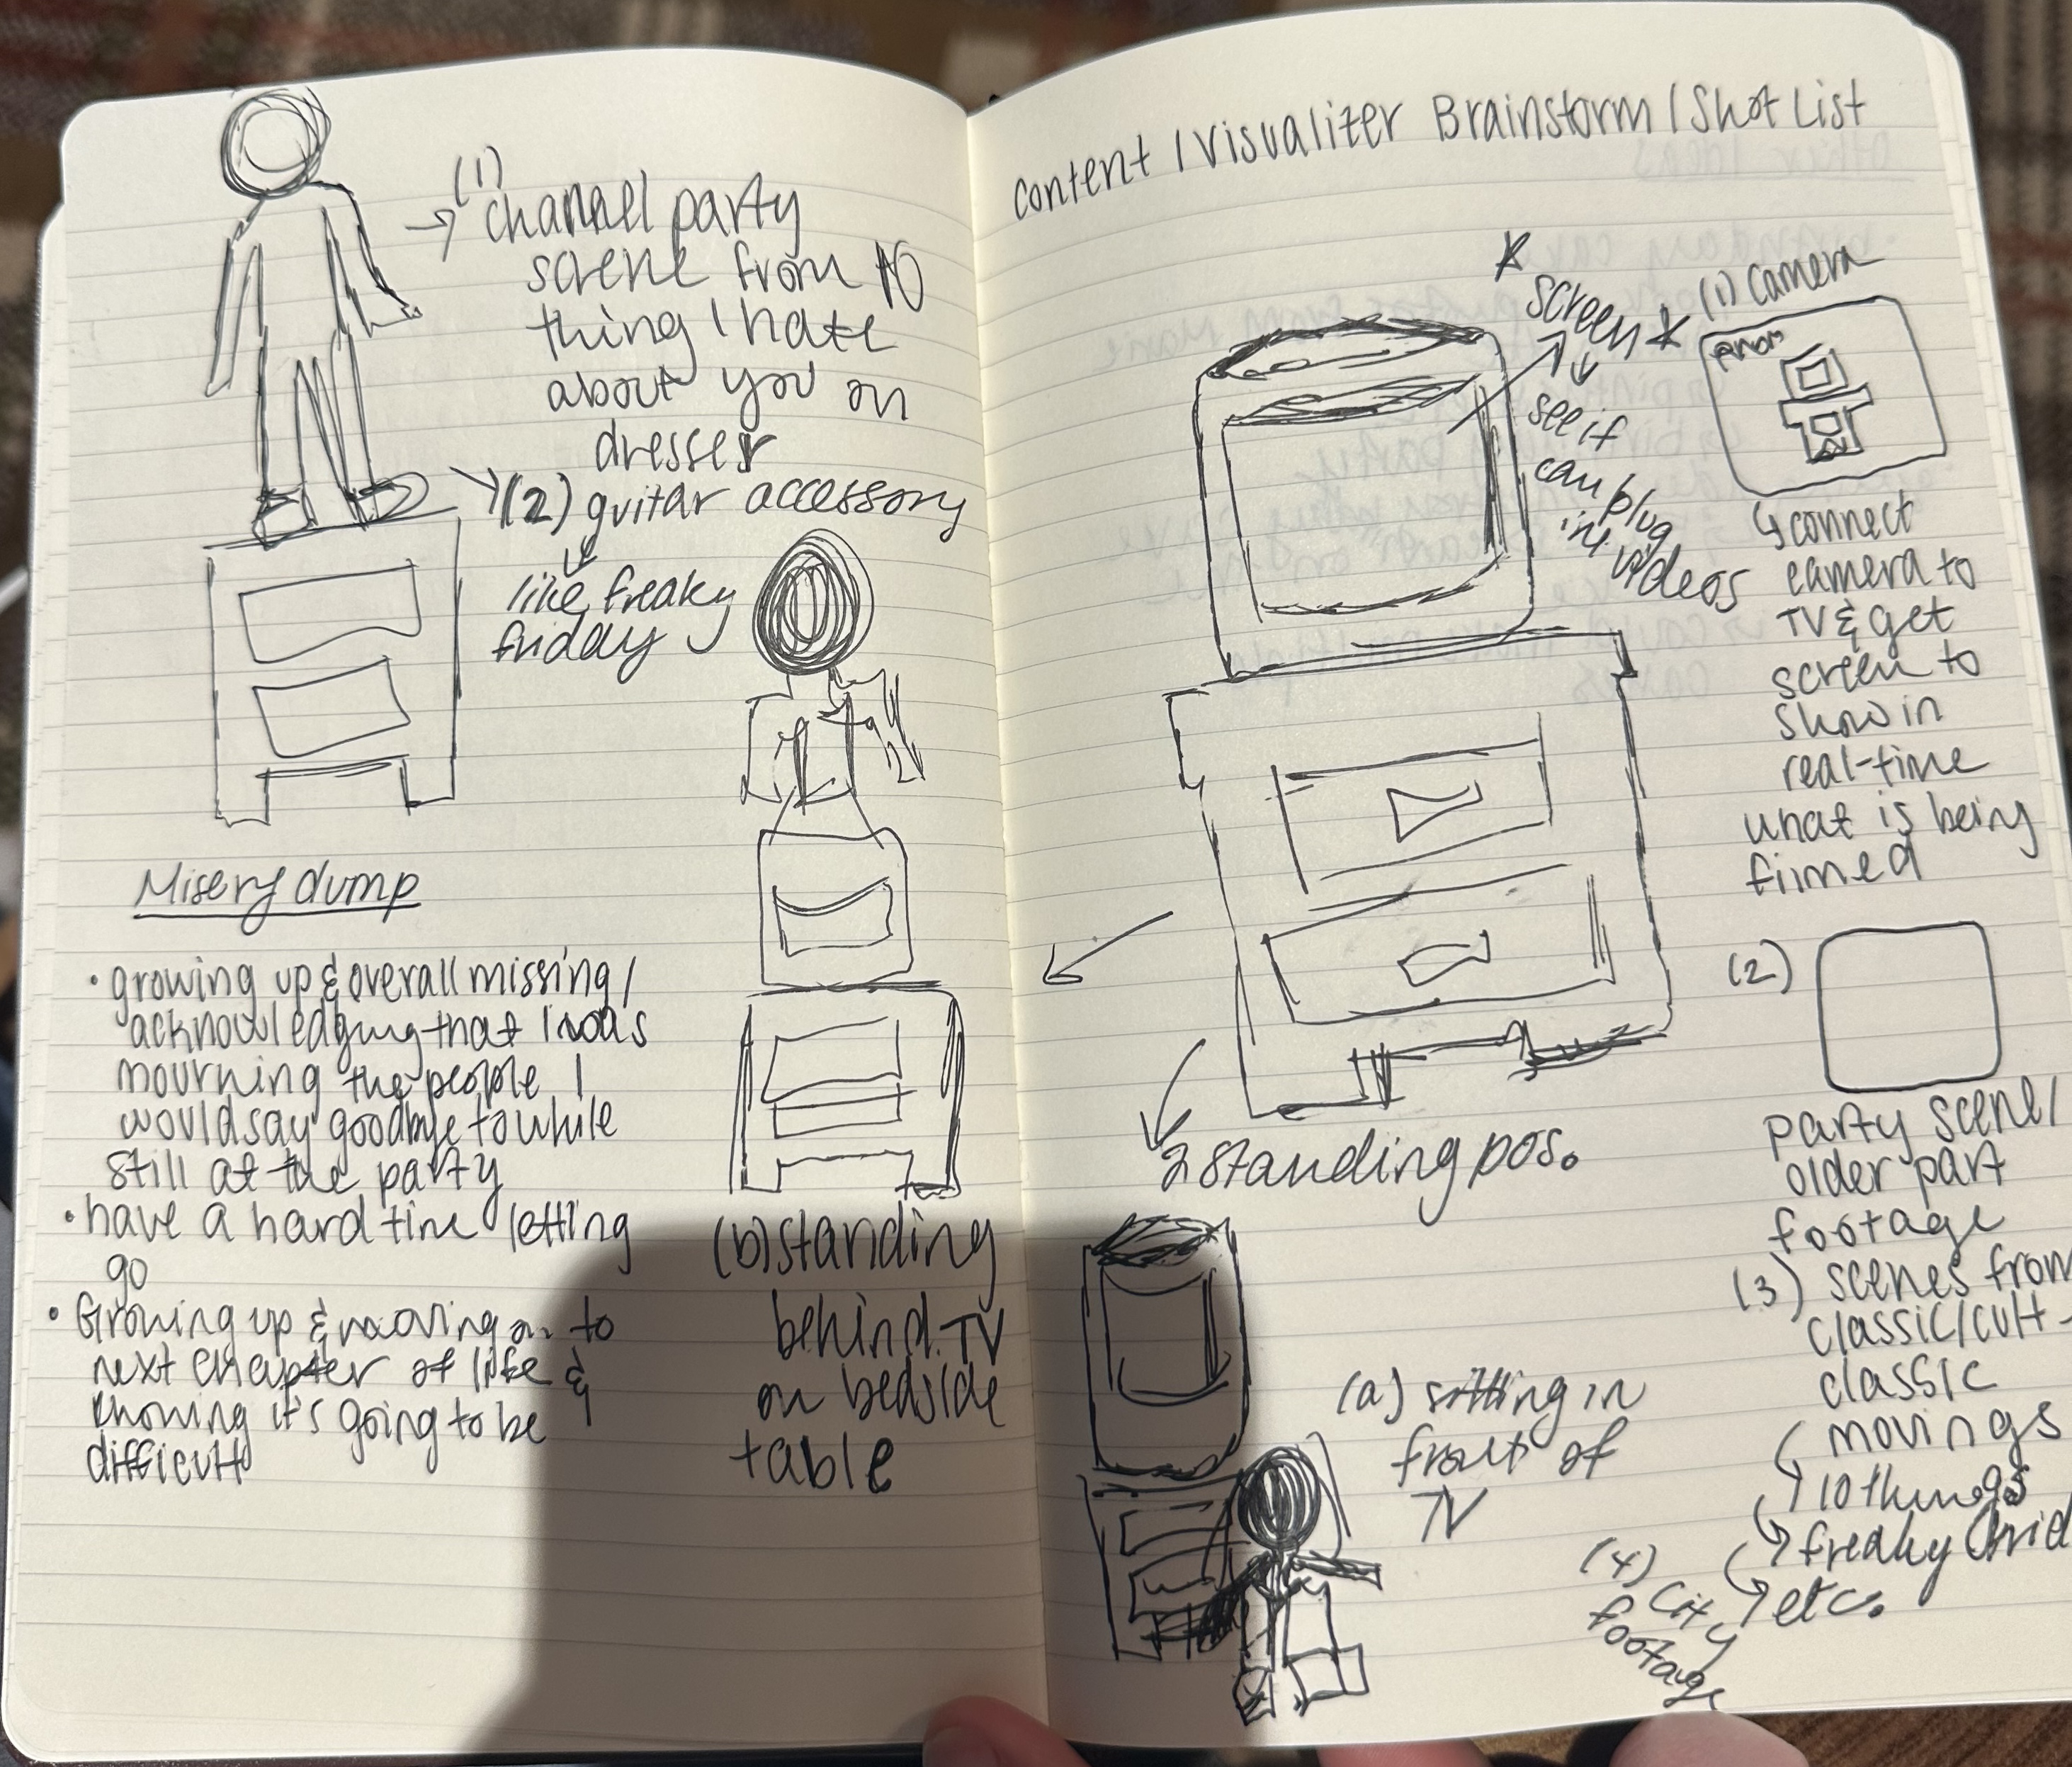 (1)
→ channel party
scene from 10
thing I hate
about you on
dresser
(2) guitar accessory
like freaky
friday
Misery dump
• growing up & overall missing /
acknowledging that I was
mourning the people I
would say goodbye to while
still at the party
• have a hard time letting
go
• Growing up & moving on to
next chapter of life &
knowing it's going to be
difficult
(b) standing
behind TV
on bedside
table
Content / Visualizer Brainstorm / Shot List
* screen *
see if
can plug
in videos
(1) camera
↳ connect
camera to
TV & get
screen to
show in
real-time
what is being
filmed
2 standing pos.
(2)
party scene/
older part
footage
(3) scenes from
classic/cult-
classic
movings
10 things
freaky frid
etc.
(a) sitting in
front of
TV
(4) City
footage